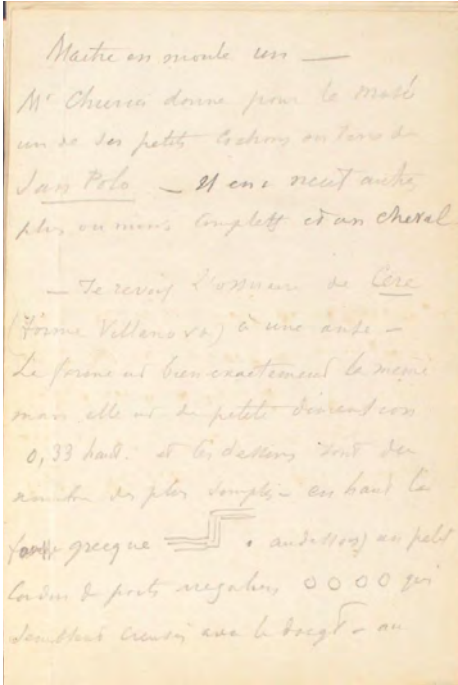 Maitre en moule un —
Mr Chierici donne pour le Musé
un de ses petits Cochons en terre de
San Polo — Il en a neuf autres
plus ou moins complets et un cheval
— Je revois l'ossuaire de Cère
(forme Villanova) à une anse —
La forme est bien exactement la même
mais elle est de petite dimension
0,33 haut. et les dessins sont des
des plus simples — en haut la
fausse grecque . au dessous un petit
Cordon de points irreguliers O O O O qui
Semblent creusés avec le doigt — au